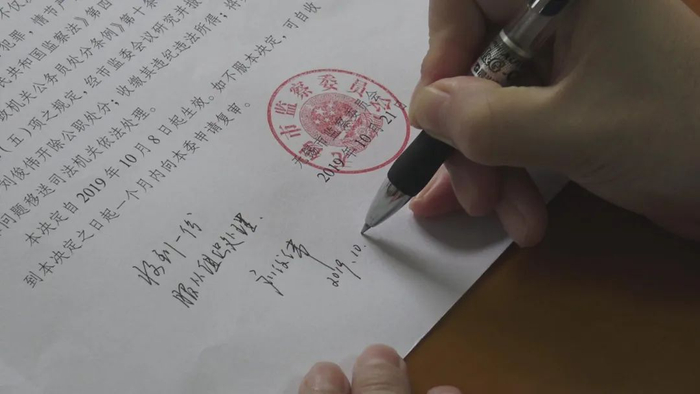 不仅
犯罪，情节严
民共和国监察法》第四
政机关公务员处分条例》第十条
（五）项之规定：经市监委会议研究并报
刘俊伟开除公职处分；收缴其违纪违法所得；将
问题移送司法机关依法处理。
本决定自2019年10月8日起生效。如不服本决定，可自收
到本决定之日起一个月内向本委申请复审。
市监察委员会
市监察委员会
2019年10月21
收到一份
服从组织处理.
刘俊伟
2019.10.